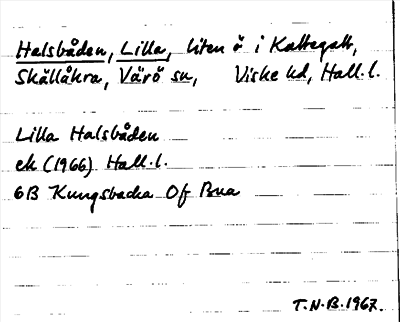 Halsbåden, Lilla, liten ö i Kattegatt,
Skällåkra, Värö sn, Viske hd, Hall.l.
Lilla Halsbåden
ek (1966) Hall.l.
6B Kungsbacka Of Bua
T.N.B. 1967.